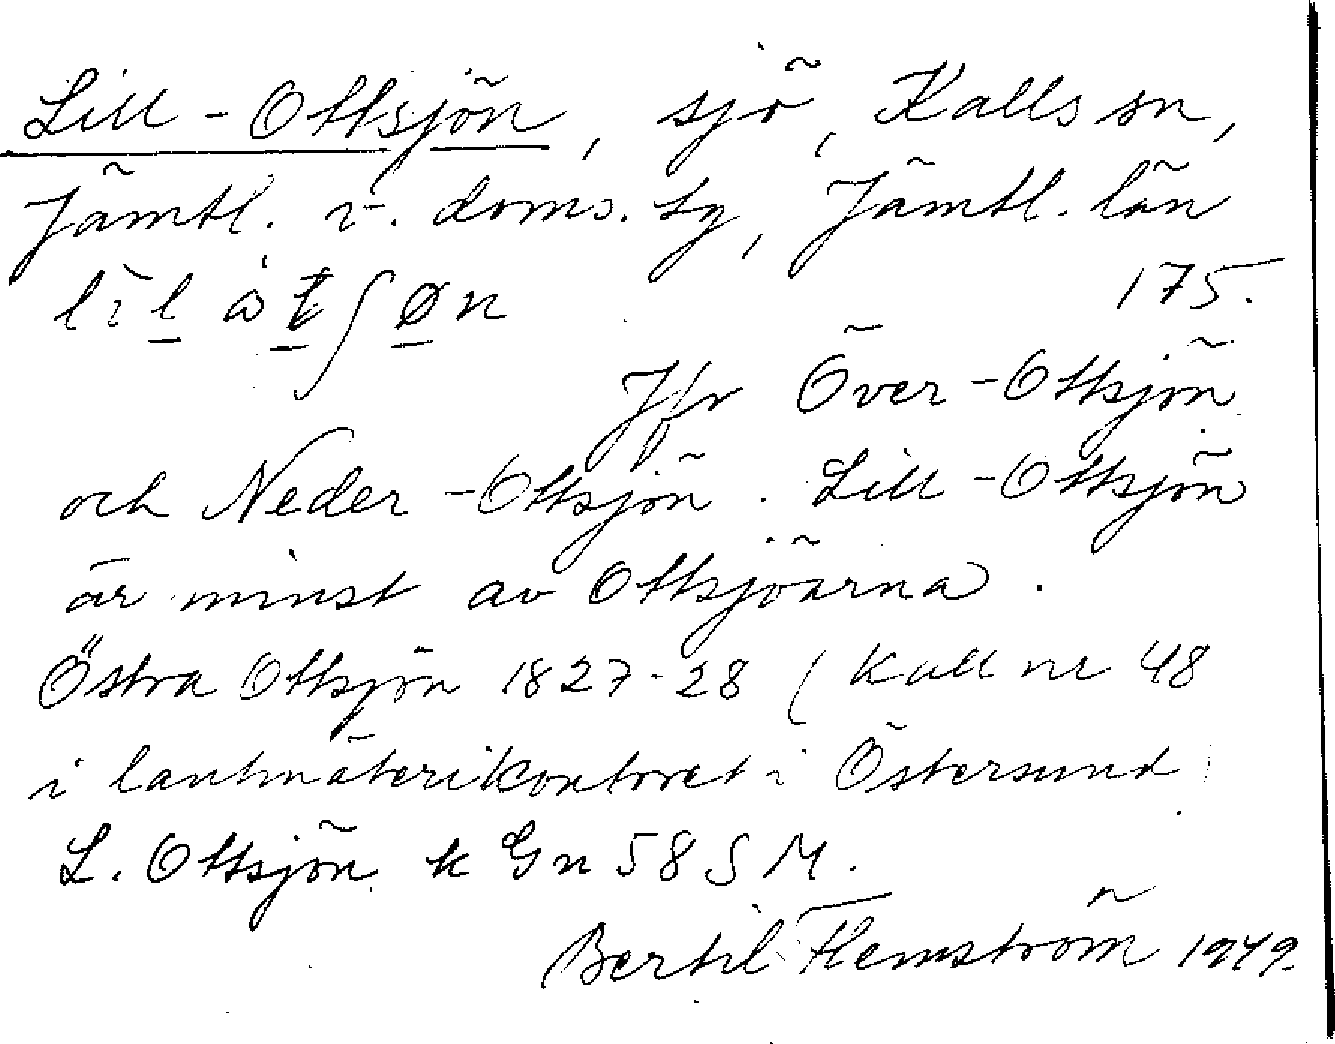 Lill-Ottsjön, sjö, Kalls sn,
Jämtl. v. doms. tg, Jämtl. län
175.
Jfr Över-Ottsjön
och Neder-Ottsjön. Lill-Ottsjön
är minst av Ottsjöarna.
Östra Ottsjön 1827-28 (Kall nr 48
i lantmäterikontoret i Östersund
L. Ottsjön k Gn 58 S M.
Bertil Flemström 1949.